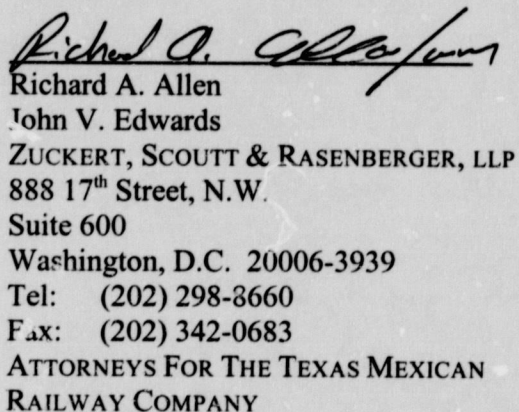 Richard A. Allen
Richard A. Allen
John V. Edwards
ZUCKERT, SCOUTT & RASENBERGER, LLP
888 17th Street, N.W.
Suite 600
Washington, D.C. 20006-3939
Tel: (202) 298-8660
Fax: (202) 342-0683
ATTORNEYS FOR THE TEXAS MEXICAN
RAILWAY COMPANY